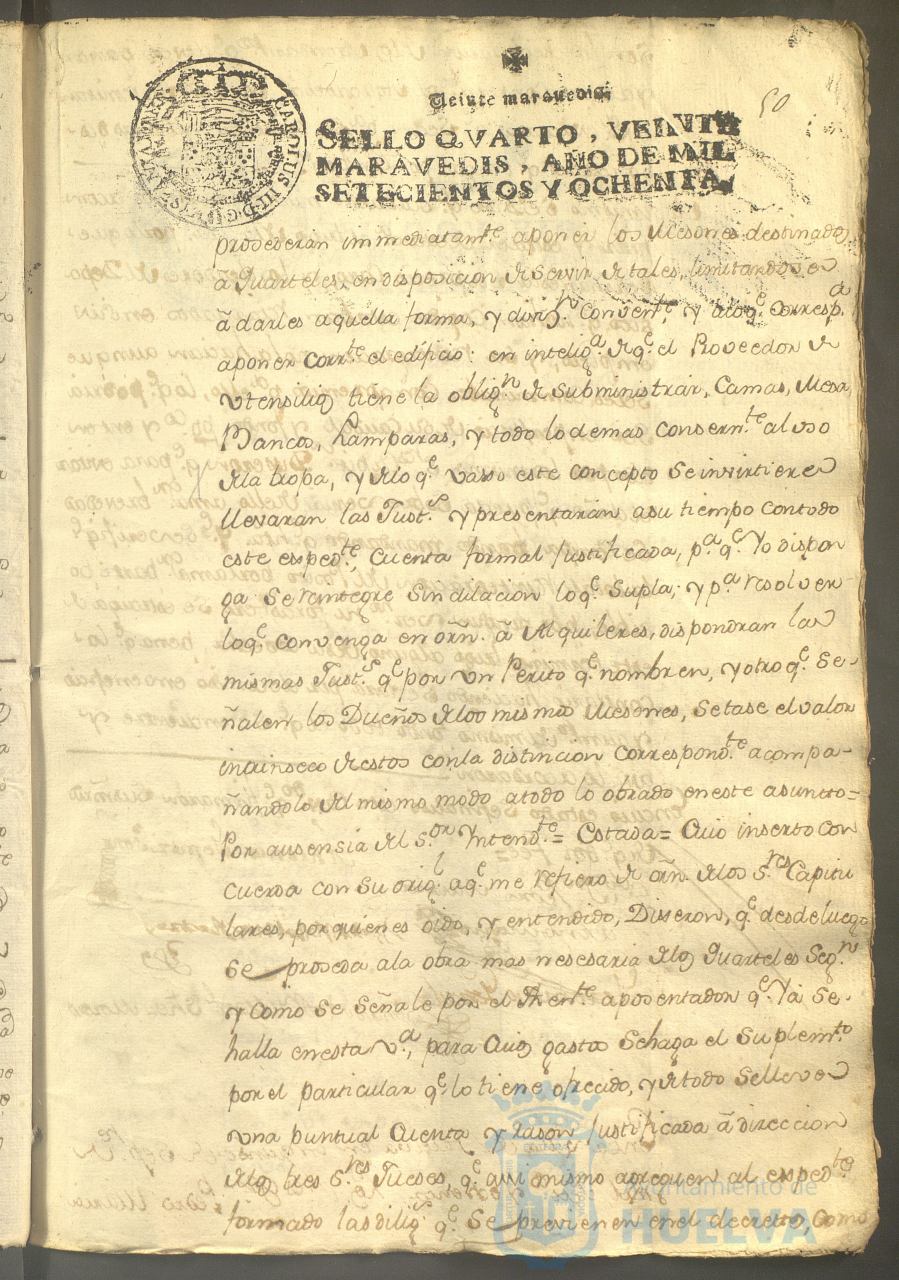 50
Veinte maravedis.
SELLO QVARTO, VEINTE
MARAVEDIS, AÑO DE MIL
SETECIENTOS Y OCHENTA.
CAROLUS III D G
prosederan immediatamte. aponer los Mesones destinados
a Quarteles, en disposicion de servir de tales, limitandose
â darles aquella forma, y Convente. y aloqe. corresp.a
aponer corrte. el edificio: en inteliga. de qe. el Proveedor de
Utensilios tiene la obligon. de subministrar, Camas, Mesas,
Bancos, Lamparas, y todo lo demas consernte. al uso
dela tropa, y delo qe. vaxo este concepto se invirtiere
llevaran las Justs. y presentaran asu tiempo con todo
este espedte., cuenta formal justificada, pa. qe. Yo dispon
ga se reintegre sin dilacion lo qe. supla; y pa. resolver
lo qe. convenga en orn. â Alquileres, dispondran las
mismas Justs. qe. por un Perito qe. nombren, y otro qe. se-
ñalen los Dueños delos mismos Mesones, se tase el valor
intrinseco de estos con la distincion correspondte. acompa-
ñandolo del mismo modo a todo lo obrado en este asuncto=
Por ausensia del Sor. Yntendte.= Estada= Cuio inserto con
cuerda con su origl. aqe. me refiero de orn. delos Sres. Capitu
lares, por quienes oido, y entendido, Disseron, qe. desde luego
se proseda ala obra mas nesesaria delos Quarteles segn.
y como se señale por el Thente. aposentador qe. Ya se
halla en esta va., para cuios gastos se haga el suplemto.
por el particular qe. lo tiene ofrecido, y de todo se lleve
una puntual cuenta y rason justificada â direccion
delos tres Sres. Jueses, qe. assi mismo agreguen al espedte.
formado las diligs. qe. se previenen en el decretto, como
Ayuntamiento de
HUELVA